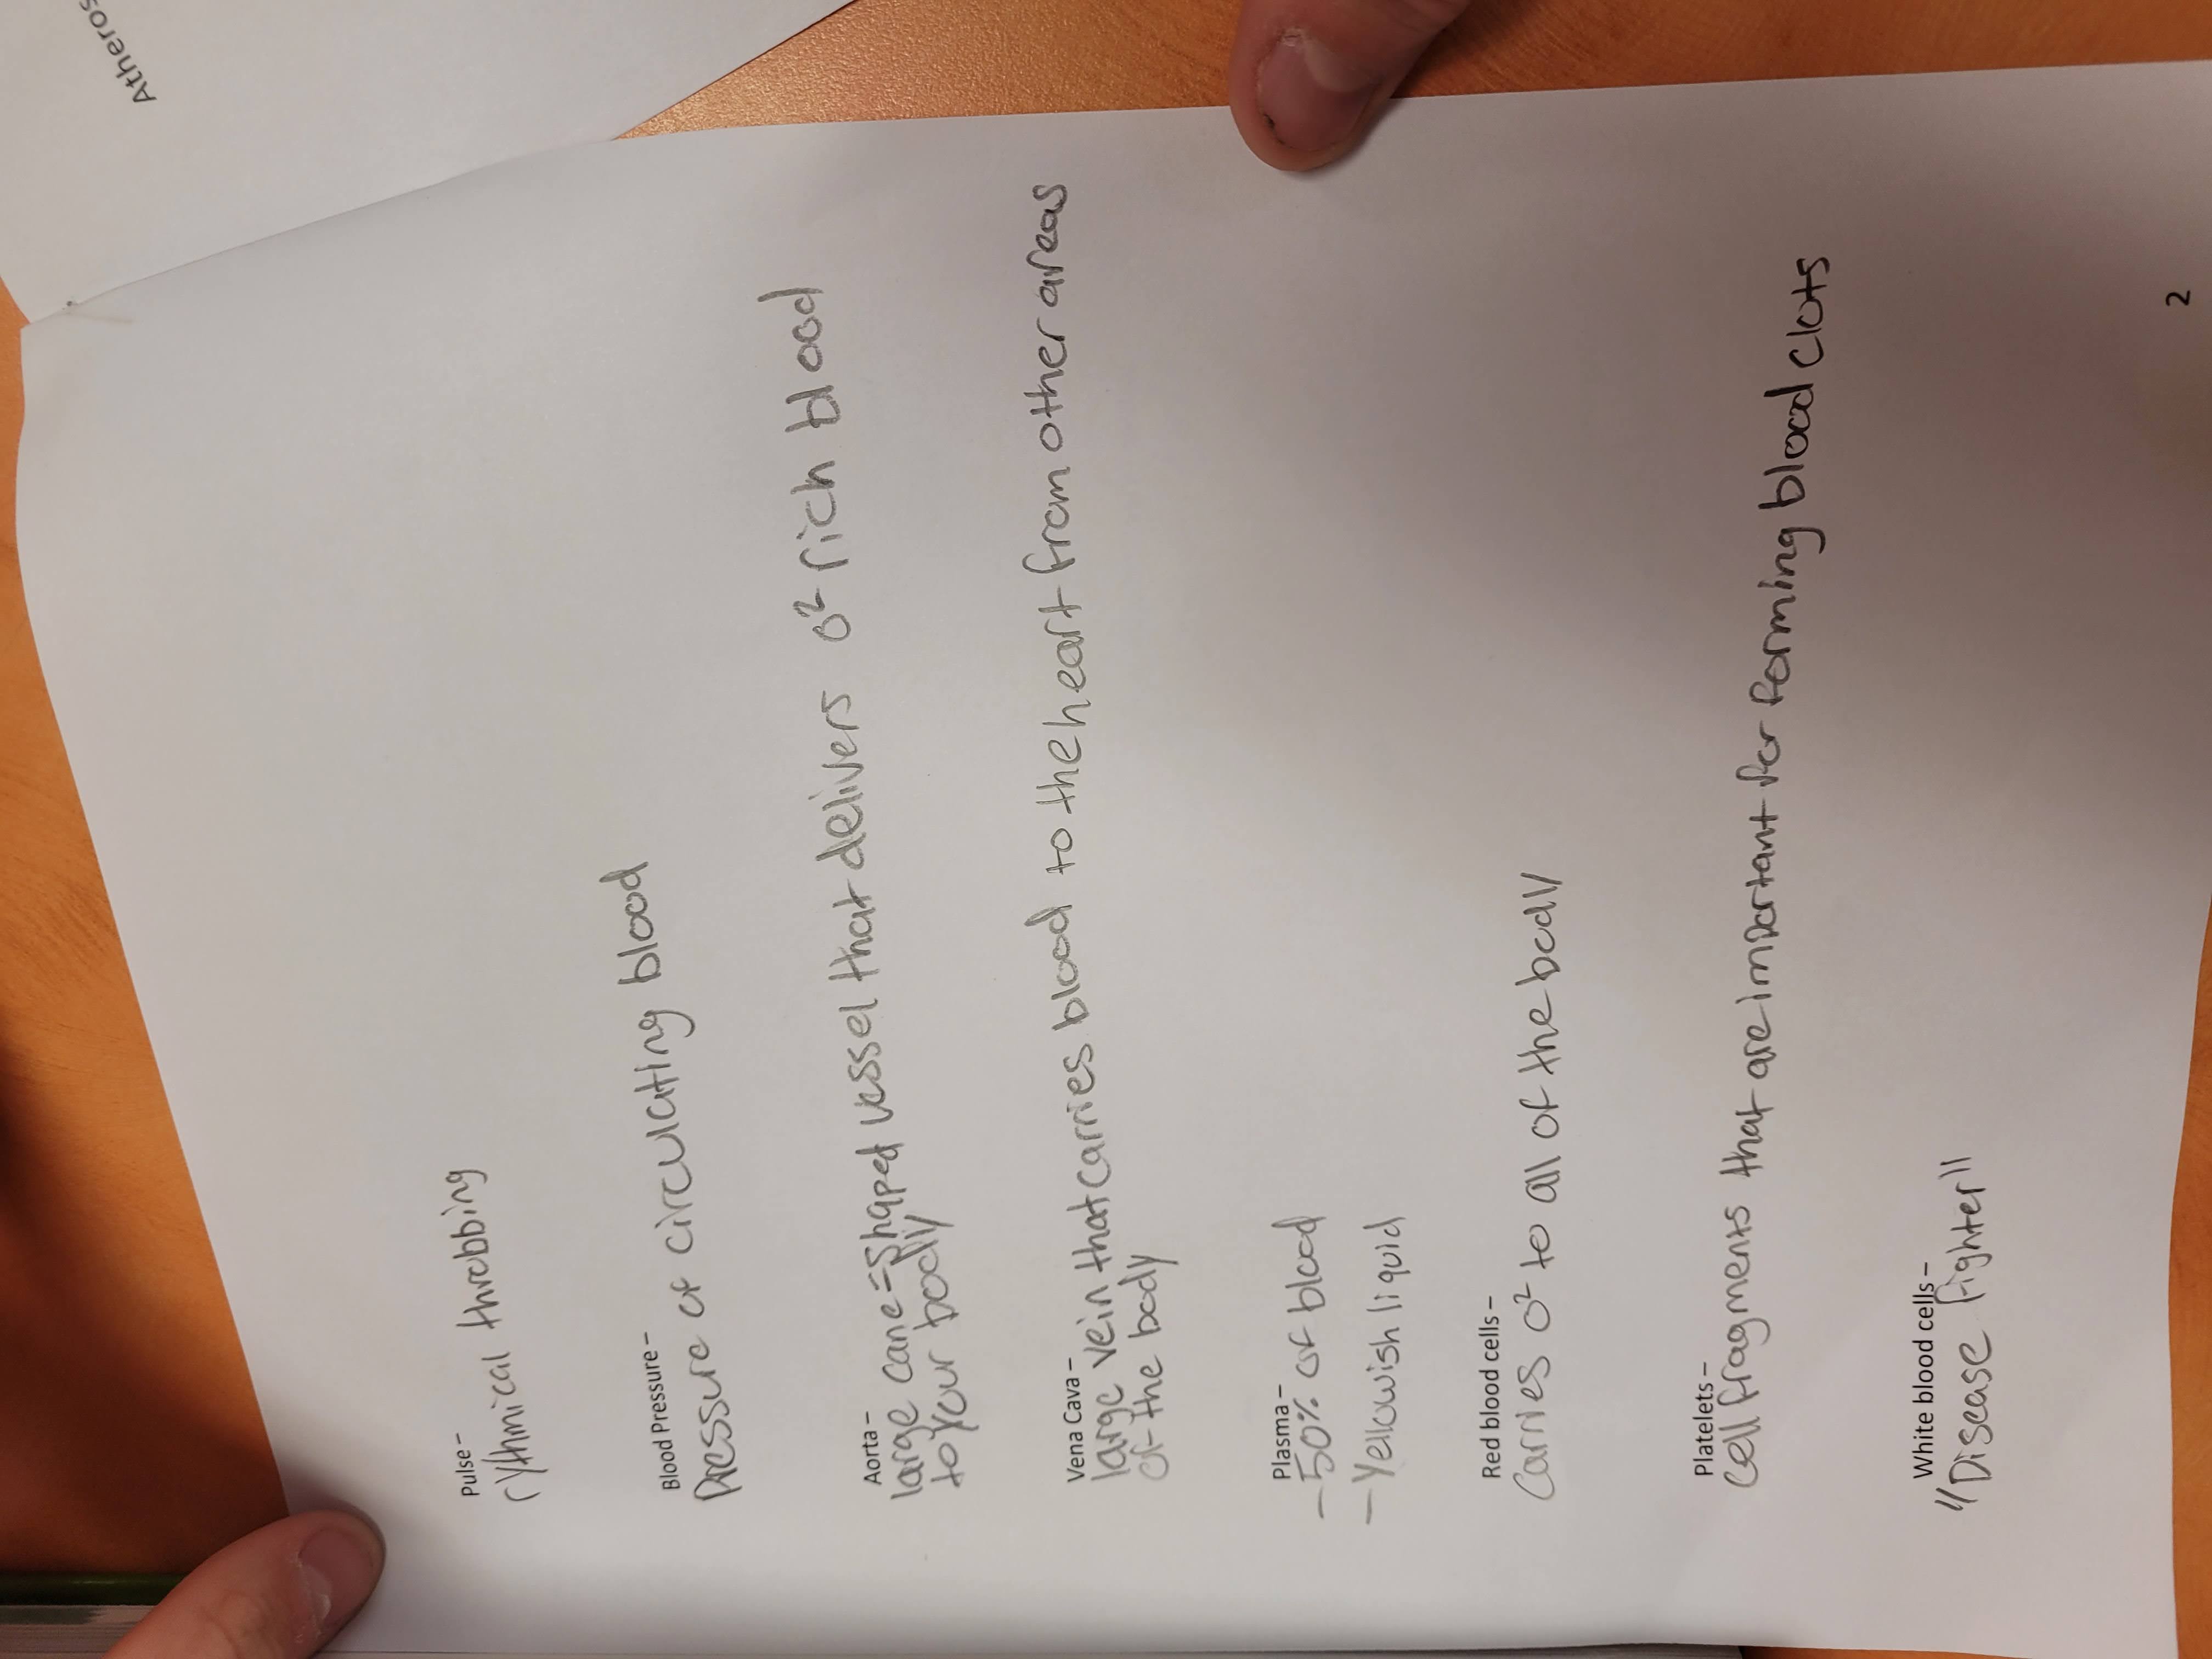 Atheros
Pulse –
rythmical throbbing
Blood Pressure –
Pressure of circulating blood
Aorta –
large cane=shaped vessel that delivers O² rich blood
to your body
Vena Cava –
large vein that carries blood to the heart from other areas
of the body
Plasma –
– 50% of blood
– Yellowish liquid
Red blood cells –
Carries O² to all of the body
Platelets –
Cell fragments that are important for forming blood clots
White blood cells –
"Disease fighter"
2